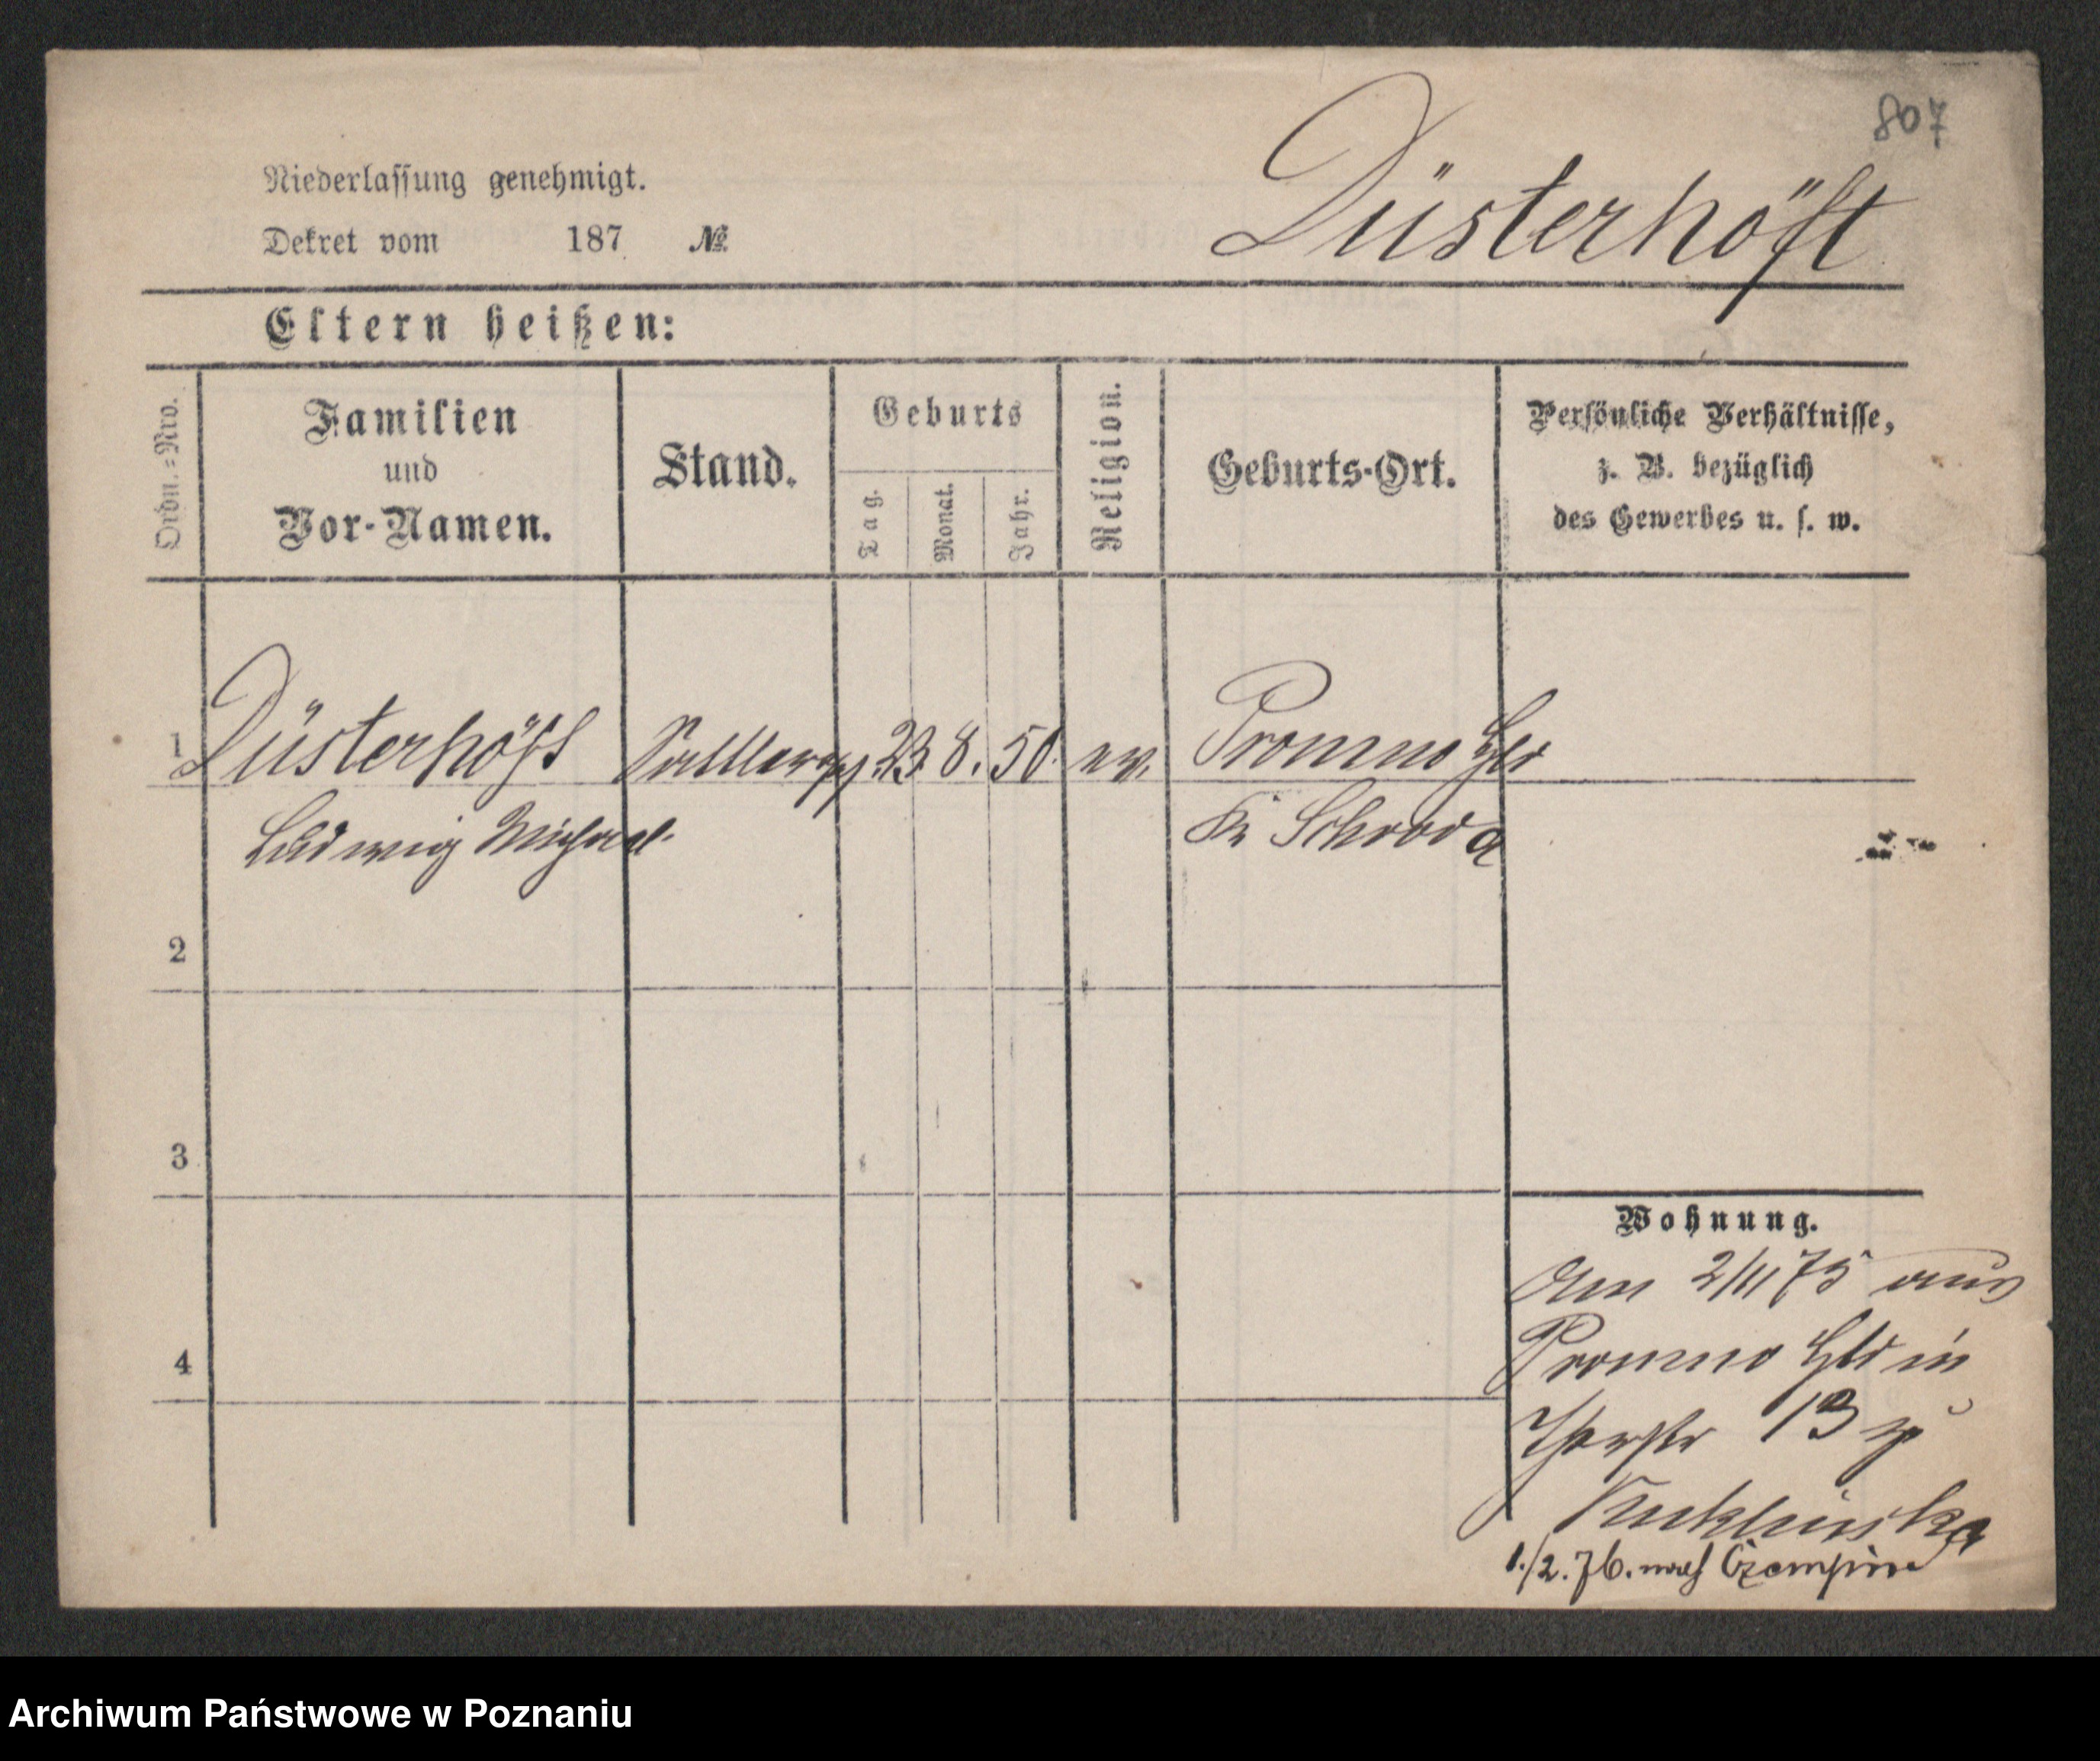 807
Niederlassung genehmigt.
Düsterhöft
Dekret vom 187 №
Eltern heißen:
Ordn.=Nro.
Familien
und
Vor-Namen.
Stand.
Geburts
Tag.
Monat.
Jahr.
Religion.
Geburts-Ort.
Persönliche Verhältnisse,
z. B. bezüglich
des Gewerbes u. s. w.
1 Düsterhöft 23. 8. 50. ev. Promno Hld
Ludwig Michael. Kr Schroda
2
3
4
Wohnung.
Am 2/11 75 aus
Promno Hld in
Thorstr 13 zu
1./2. 76. nach Czempin
Archiwum Państwowe w Poznaniu